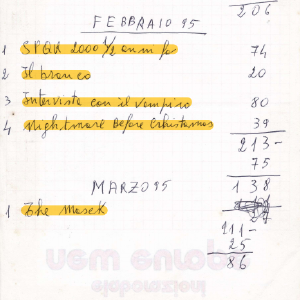 206
FEBBRAIO 95
1 SPQR 2000 e 1/2 anni fa 74
2 Il branco 20
3 Intervista con il vampiro 80
4 Nightmare Before Christmas 39
213-
75
MARZO 95
138
1 The Mask 27
111-
25
86